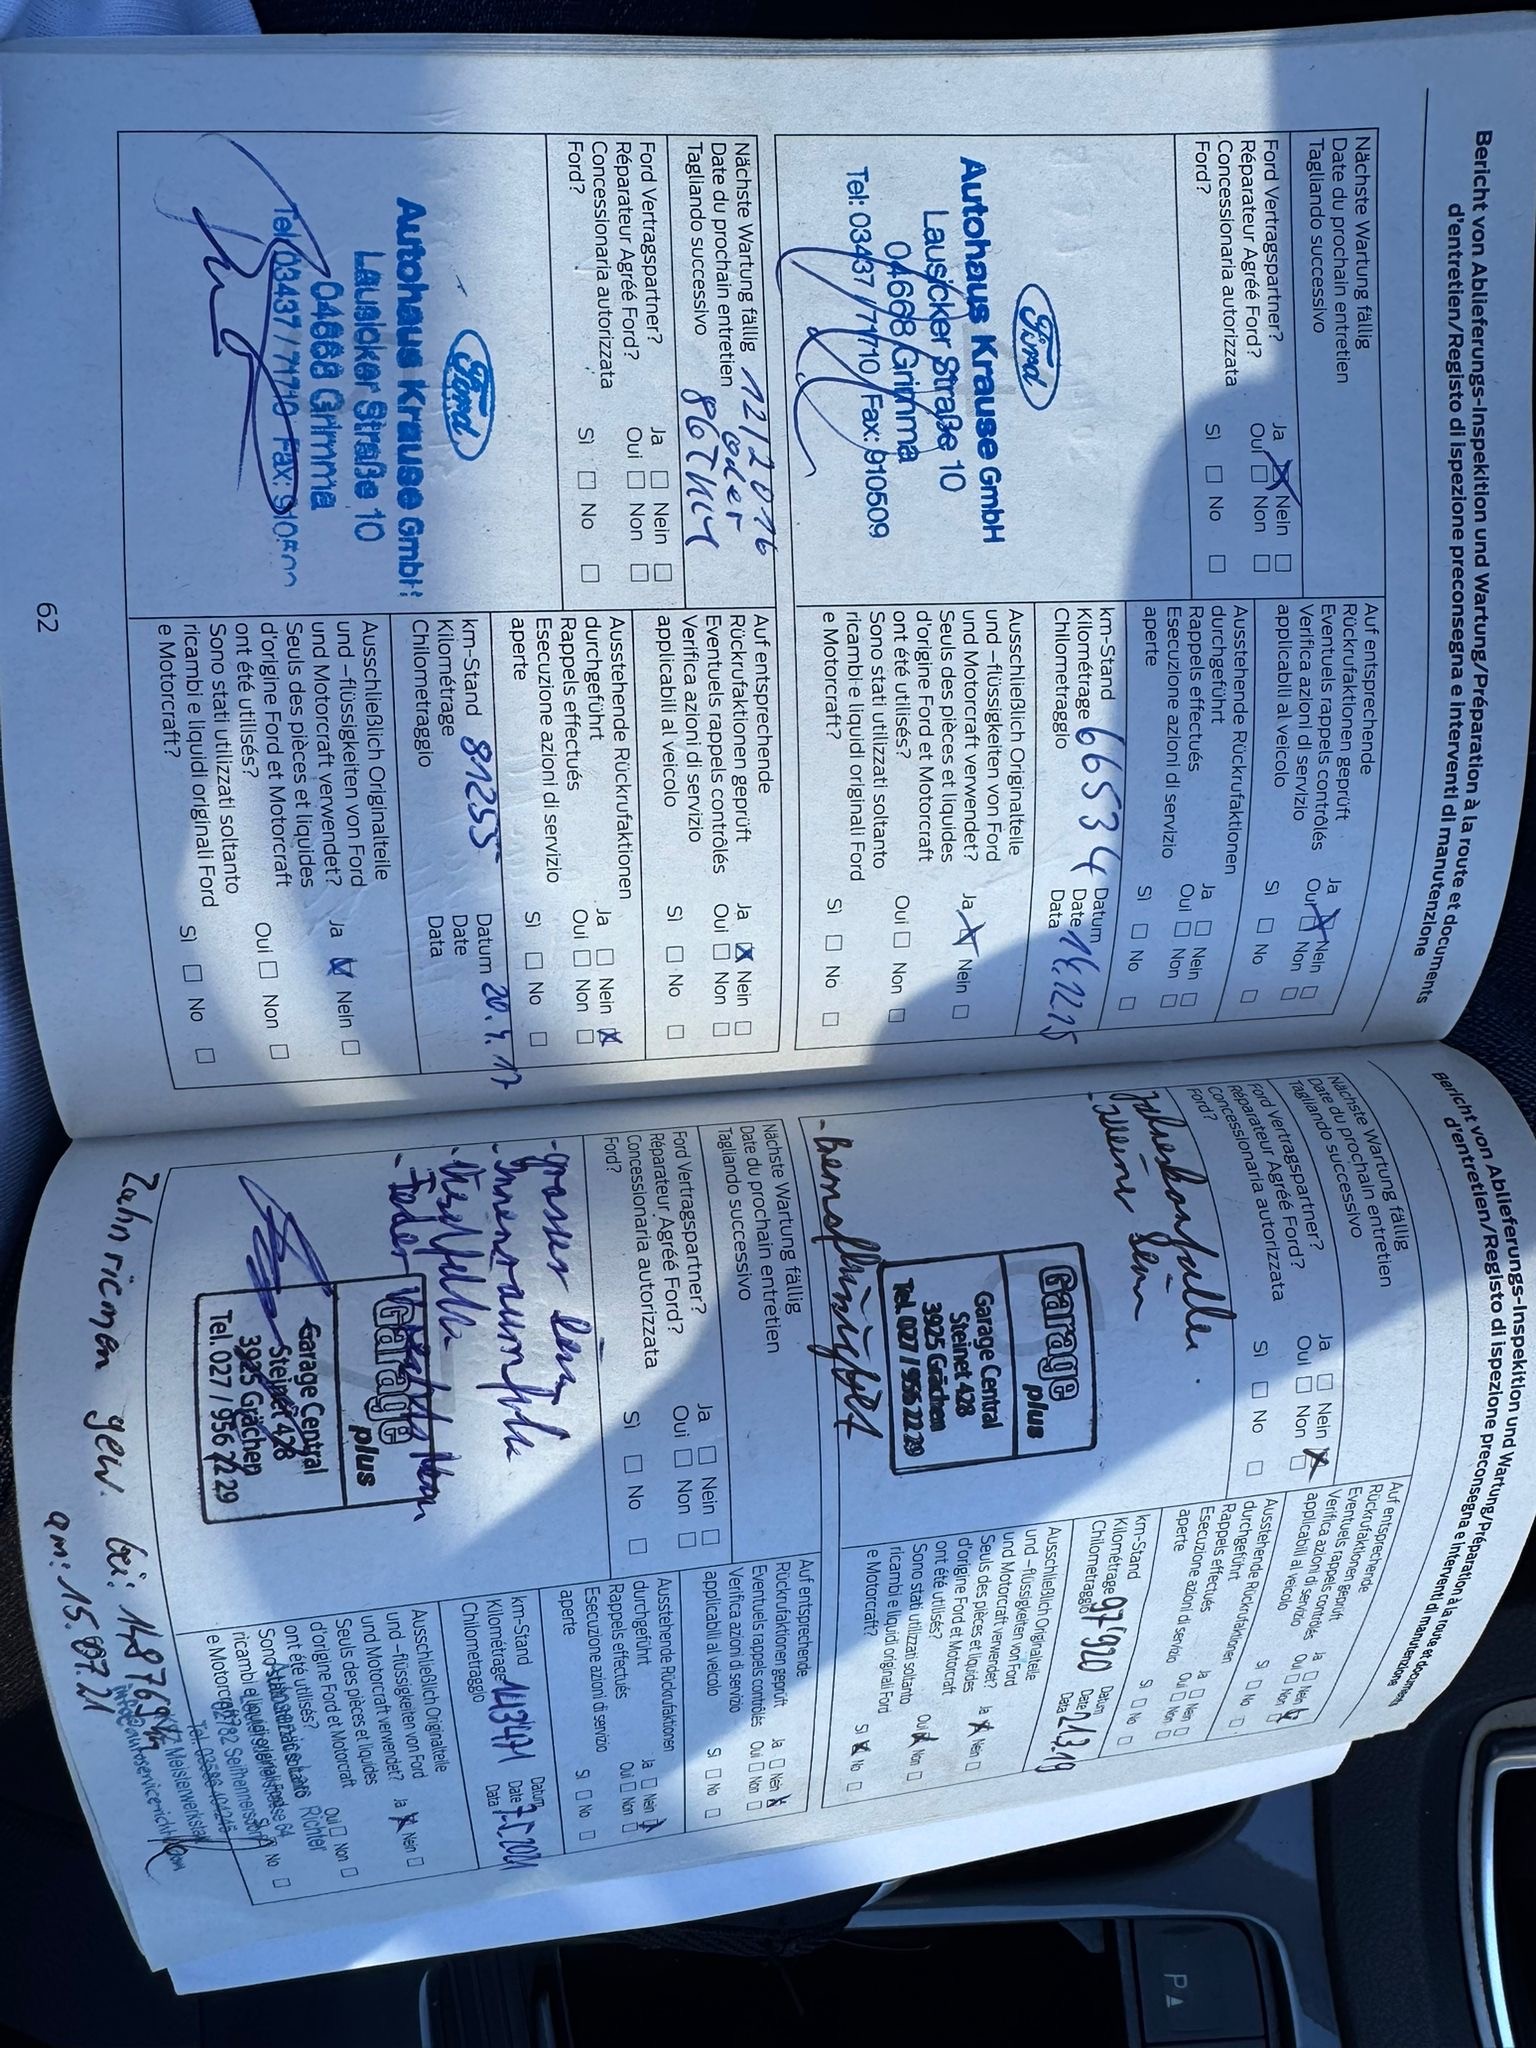 Bericht von Ablieferungs-Inspektion und Wartung/Préparation à la route et documents
d'entretien/Registo di ispezione preconsegna e interventi di manutenzione
Nächste Wartung fällig
Date du prochain entretien
Tagliando successivo
Ford Vertragspartner?
Réparateur Agréé Ford?
Concessionaria autorizzata
Ford?
Ja Nein
Oui Non
Sì No
Auf entsprechende
Rückrufaktionen geprüft
Eventuels rappels contrôlés
Verifica azioni di servizio
applicabili al veicolo
Ja Nein
Oui Non
Sì No
Ausstehende Rückrufaktionen
durchgeführt
Rappels effectués
Esecuzione azioni di servizio
aperte
Ja Nein
Oui Non
Sì No
Ford
Autohaus Krause GmbH
Lausicker Straße 10
04668 Grimma
Tel: 03437 / 71710 Fax: 910509
km-Stand
Kilométrage 66534
Chilometraggio
Datum
Date
Data
Ausschließlich Originalteile
und –flüssigkeiten von Ford
und Motorcraft verwendet?
Seuls des pièces et liquides
d'origine Ford et Motorcraft
ont été utilisés?
Sono stati utilizzati soltanto
ricambi e liquidi originali Ford
e Motorcraft?
Ja Nein
Oui Non
Sì No
Nächste Wartung fällig 12/2016
Date du prochain entretien oder
Tagliando successivo
Ford Vertragspartner?
Réparateur Agréé Ford?
Concessionaria autorizzata
Ford?
Ja Nein
Oui Non
Sì No
Auf entsprechende
Rückrufaktionen geprüft
Eventuels rappels contrôlés
Verifica azioni di servizio
applicabili al veicolo
Ja Nein
Oui Non
Sì No
Ausstehende Rückrufaktionen
durchgeführt
Rappels effectués
Esecuzione azioni di servizio
aperte
Ja Nein
Oui Non
Sì No
Ford
Autohaus Krause GmbH
Lausicker Straße 10
04668 Grimma
Tel: 03437 / 71710 Fax:
km-Stand 81255
Kilométrage
Chilometraggio
Datum 20.4.17
Date
Data
Ausschließlich Originalteile
und –flüssigkeiten von Ford
und Motorcraft verwendet?
Seuls des pièces et liquides
d'origine Ford et Motorcraft
ont été utilisés?
Sono stati utilizzati soltanto
ricambi e liquidi originali Ford
e Motorcraft?
Ja Nein
Oui Non
Sì No
62
Bericht von Ablieferungs-Inspektion und Wartung/Préparation à la route et documents
d'entretien/Registo di ispezione preconsegna e interventi di manutenzione
Nächste Wartung fällig
Date du prochain entretien
Tagliando successivo
Ford Vertragspartner?
Réparateur Agréé Ford?
Concessionaria autorizzata
Ford?
Ja Nein
Oui Non
Sì No
Auf entsprechende
Rückrufaktionen geprüft
Eventuels rappels contrôlés
Verifica azioni di servizio
applicabili al veicolo
Ja Nein
Oui Non
Sì No
Ausstehende Rückrufaktionen
durchgeführt
Rappels effectués
Esecuzione azioni di servizio
aperte
Ja Nein
Oui Non
Sì No
Garage plus
Garage Central
Steinet 428
3925 Grächen
Tel. 027 / 956 22 29
km-Stand
Kilométrage 97'920
Chilometraggio
Datum
Date 21.3.19
Data
Ausschließlich Originalteile
und –flüssigkeiten von Ford
und Motorcraft verwendet?
Seuls des pièces et liquides
d'origine Ford et Motorcraft
ont été utilisés?
Sono stati utilizzati soltanto
ricambi e liquidi originali Ford
e Motorcraft?
Ja Nein
Oui Non
Sì No
Nächste Wartung fällig
Date du prochain entretien
Tagliando successivo
Ford Vertragspartner?
Réparateur Agréé Ford?
Concessionaria autorizzata
Ford?
Ja Nein
Oui Non
Sì No
Auf entsprechende
Rückrufaktionen geprüft
Eventuels rappels contrôlés
Verifica azioni di servizio
applicabili al veicolo
Ja Nein
Oui Non
Sì No
Ausstehende Rückrufaktionen
durchgeführt
Rappels effectués
Esecuzione azioni di servizio
aperte
Ja Nein
Oui Non
Sì No
- grosser
- Innenraumfilter
Garage plus
Garage Central
Steinet 428
3925 Grächen
Tel. 027 / 956 22 29
km-Stand
Kilométrage
Chilometraggio
Datum
Date
Data
Ausschließlich Originalteile
und –flüssigkeiten von Ford
und Motorcraft verwendet?
Seuls des pièces et liquides
d'origine Ford et Motorcraft
ont été utilisés?
Sono stati utilizzati soltanto
ricambi e liquidi originali Ford
e Motorcraft?
Ja Nein
Oui Non
Sì No
Zahnriemen gew. bei: 148769
am: 15.07.21
P